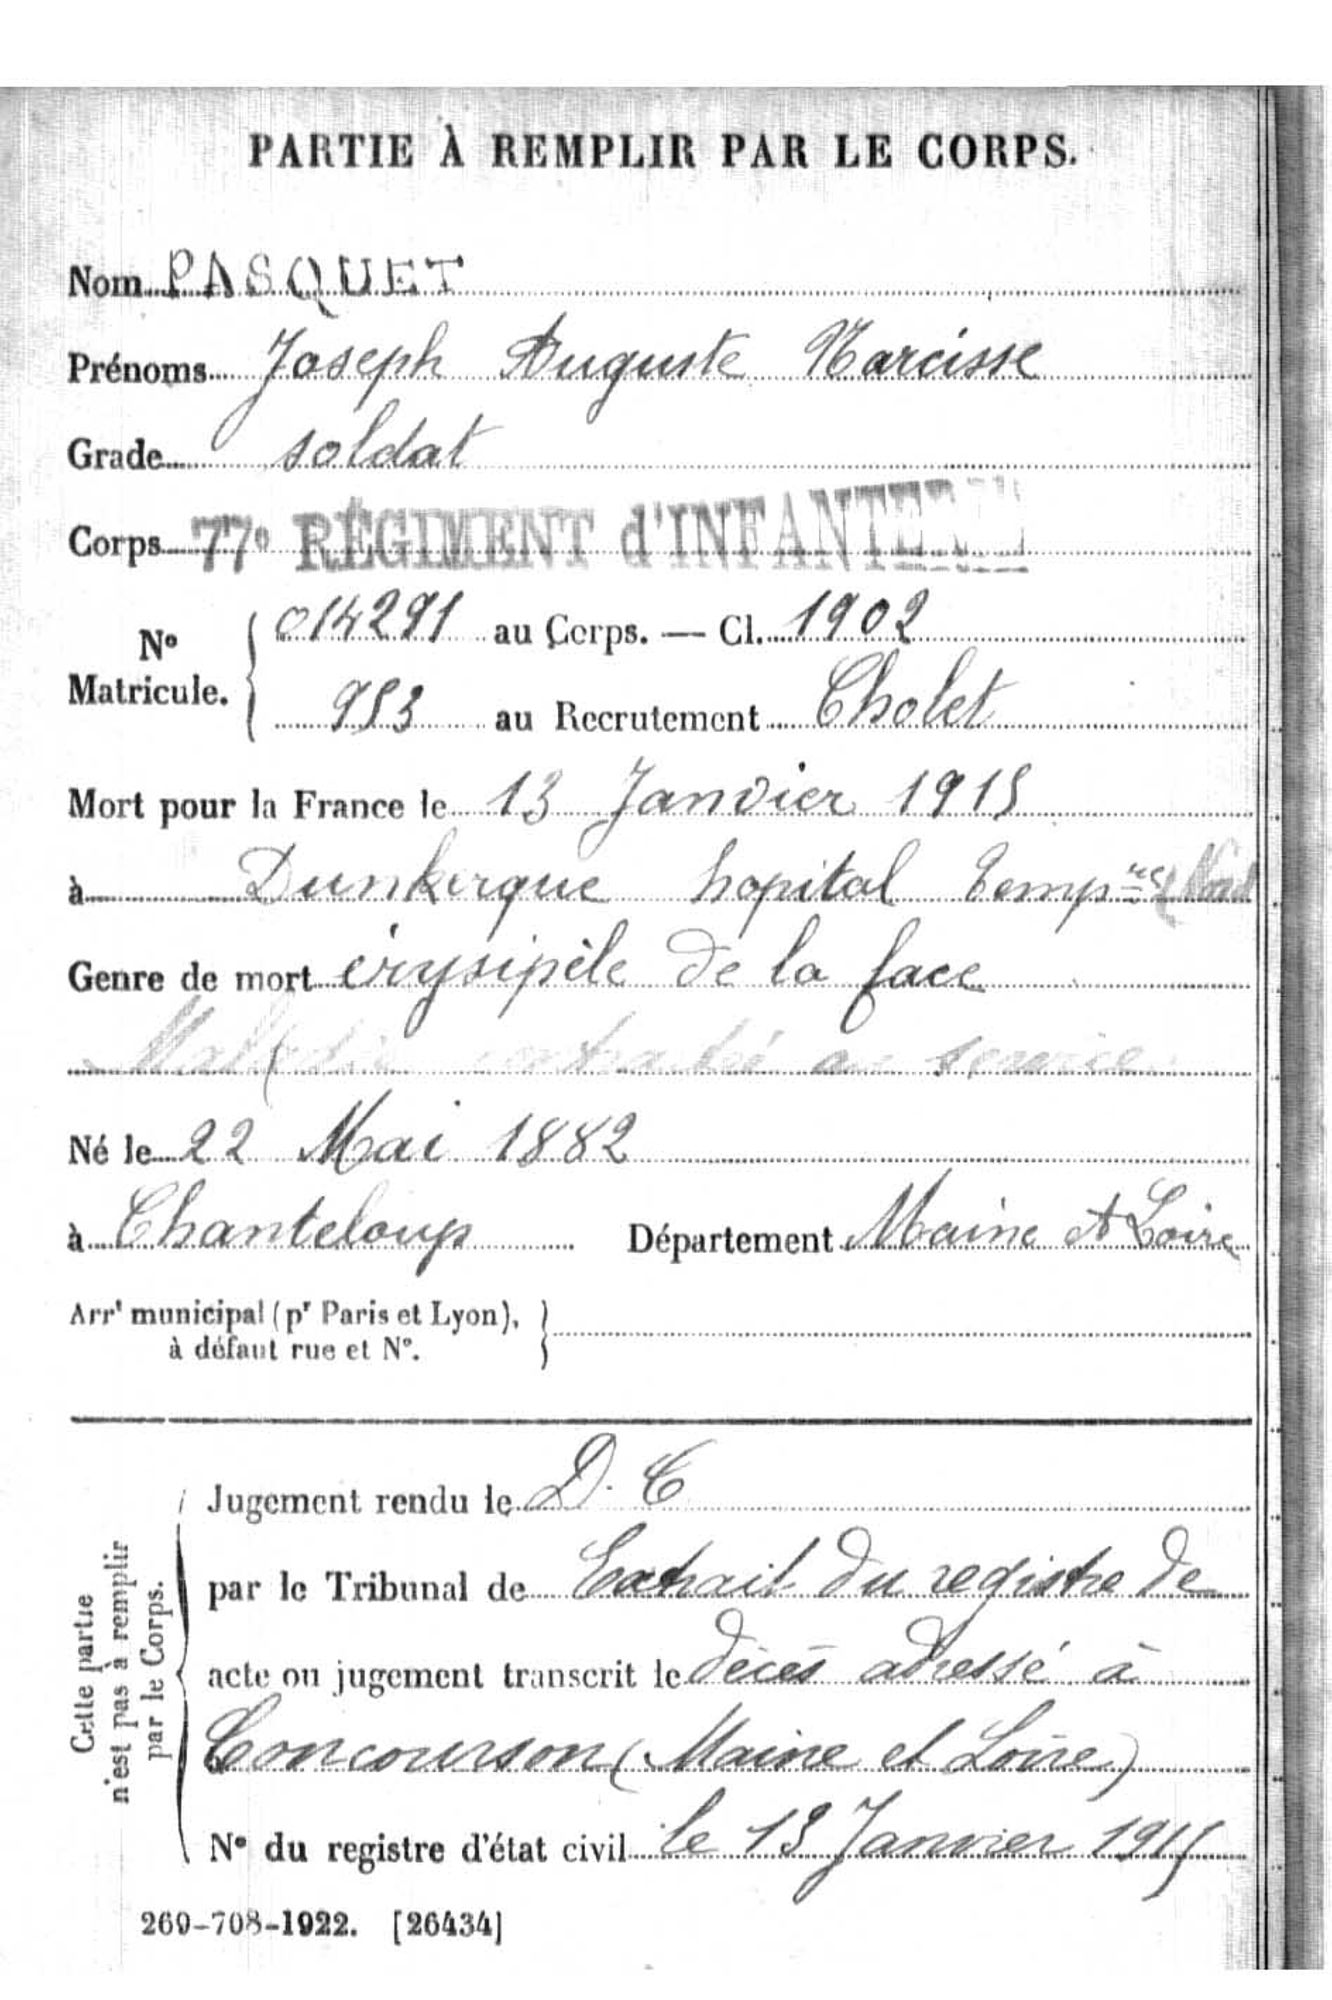 PARTIE À REMPLIR PAR LE CORPS.
Nom PASQUET
Prénoms Joseph Auguste Narcisse
Grade soldat
Corps 77e RÉGIMENT d'INFANTERIE
No Matricule. 014291 au Corps. — Cl. 1902
953 au Recrutement Cholet
Mort pour la France le 13 Janvier 1915
à Dunkerque hopital tempre (Nord
Genre de mort érysipèle de la face
Maladie contractée au service
Né le 22 Mai 1882
à Chanteloup Département Maine et Loire
Arrt municipal (pr Paris et Lyon),
à défaut rue et No.
Cette partie
n'est pas à remplir
par le Corps.
Jugement rendu le D. C
par le Tribunal de Extrait du registre de
acte ou jugement transcrit le décès adressé à
Concourson (Maine et Loire)
No du registre d'état civil le 13 Janvier 1915
269-708-1922. [26434]